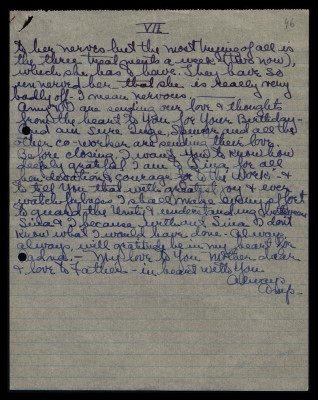 VII
96
to her nerves but the most trying of all is
the three treatments a week (two now),
which she has to have. They have so
unnerved her that she is really very
badly off. I mean nervous.
Amr. D. are sending our love & thoughts
from the heart to You for Your Birthday -
and am sure Inge, Spencer and all the
other co-workers are sending their love.
Before closing I want You to know how
deeply grateful I am to Sina for all
her devotion & courage for to the Work - &
to tell You that with greatest joy & ever
watchfulness I shall make every effort
to guard the Unity & understanding between
Sina & I because without Sina I dont
know what I would have done. Always,
always, will gratitude be in my heart for
Radna. - My love to You Mother dear
& love to Father - in heart with You
Always
Amr.